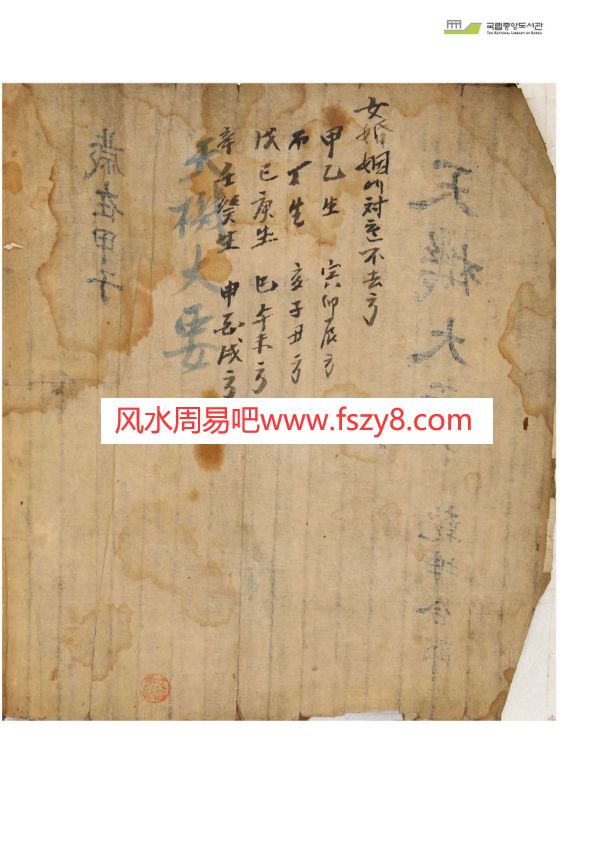 국립중앙도서관
THE NATIONAL LIBRARY OF KOREA
天機大
乾坤合
女婚姻 不去方
甲乙生 寅卯辰方
丙丁生 亥子丑方
戊己庚生 巳午未方
辛壬癸生 申酉戌方
天機大要
歲在甲子
风水周易吧www.fszy8.com